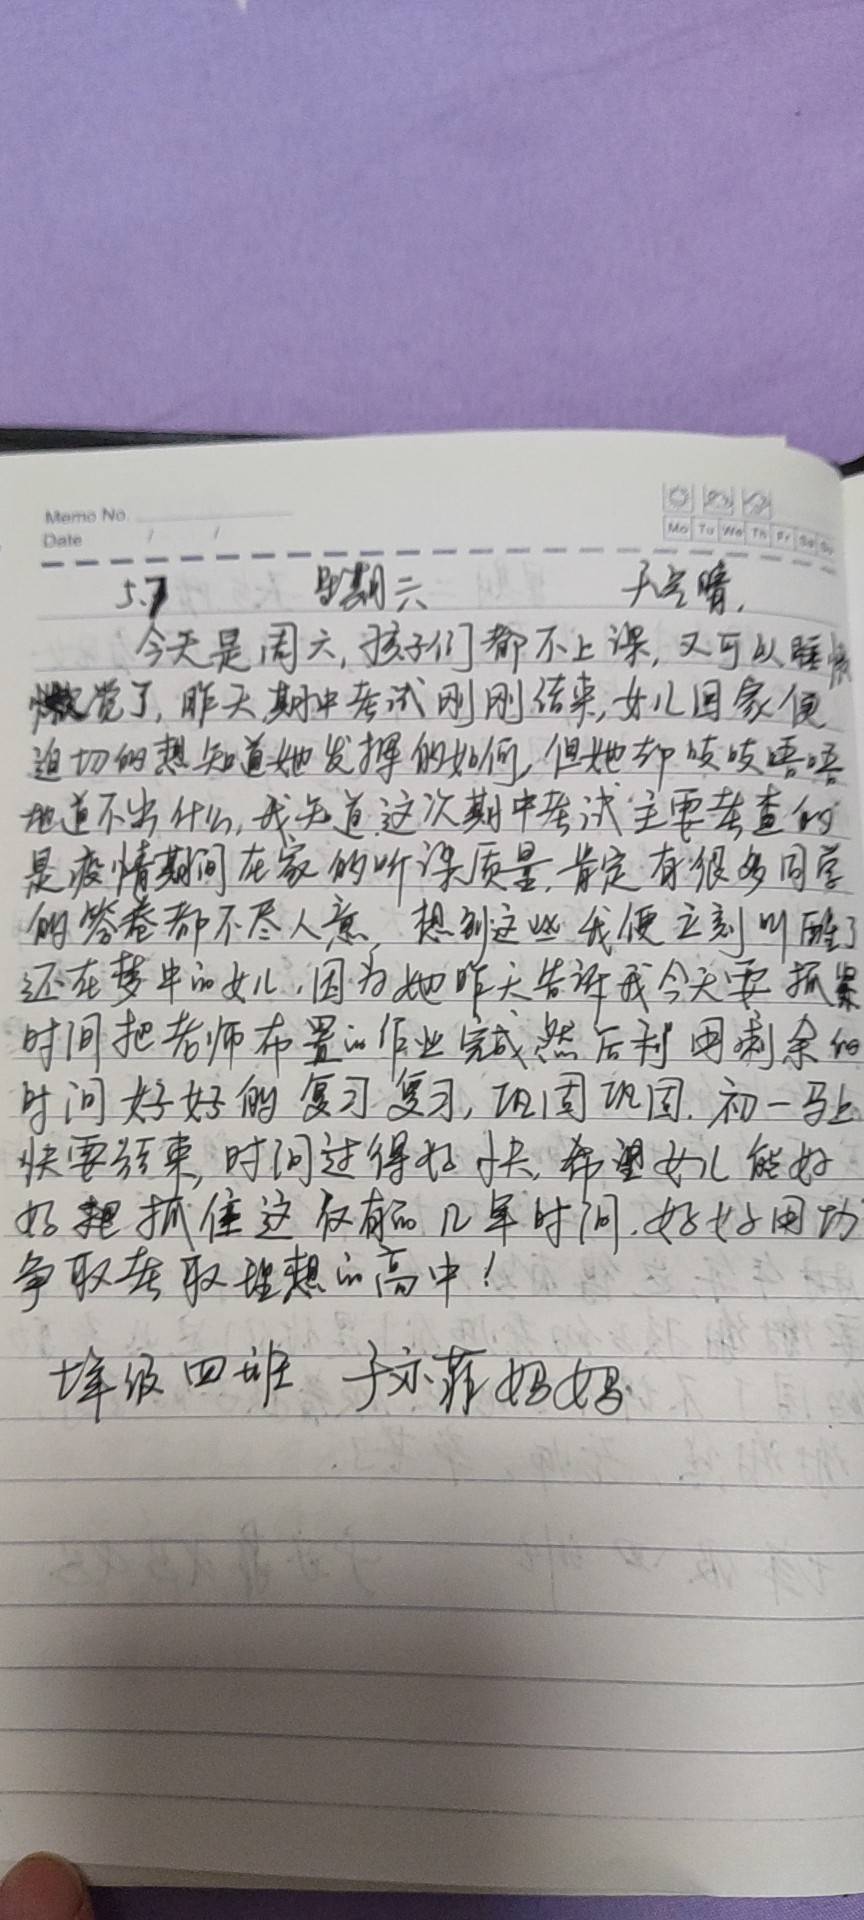 Memo No.
Date / /
Mo Tu We Th Fr Sa Su
5.7 星期六 天空晴,
今天是周六,孩子们都不上课,又可以睡懒
懒觉了,昨天期中考试刚刚结束,女儿回家便
迫切的想知道她发挥的如何,但她却吱吱唔唔
地道不出什么,我知道这次期中考试主要考查的
是疫情期间在家的听课质量,肯定有很多同学
的答卷都不尽人意,想到这些我便立刻叫醒了
还在梦中的女儿,因为她昨天告诉我今天要抓紧
时间把老师布置的作业完成然后利用剩余的
时间好好的复习复习,巩固巩固.初一马上
快要结束,时间过得好快,希望女儿能好
好把抓住这仅有的几年时间.好好用功
争取考取理想的高中!
七年级四班 于亦菲妈妈